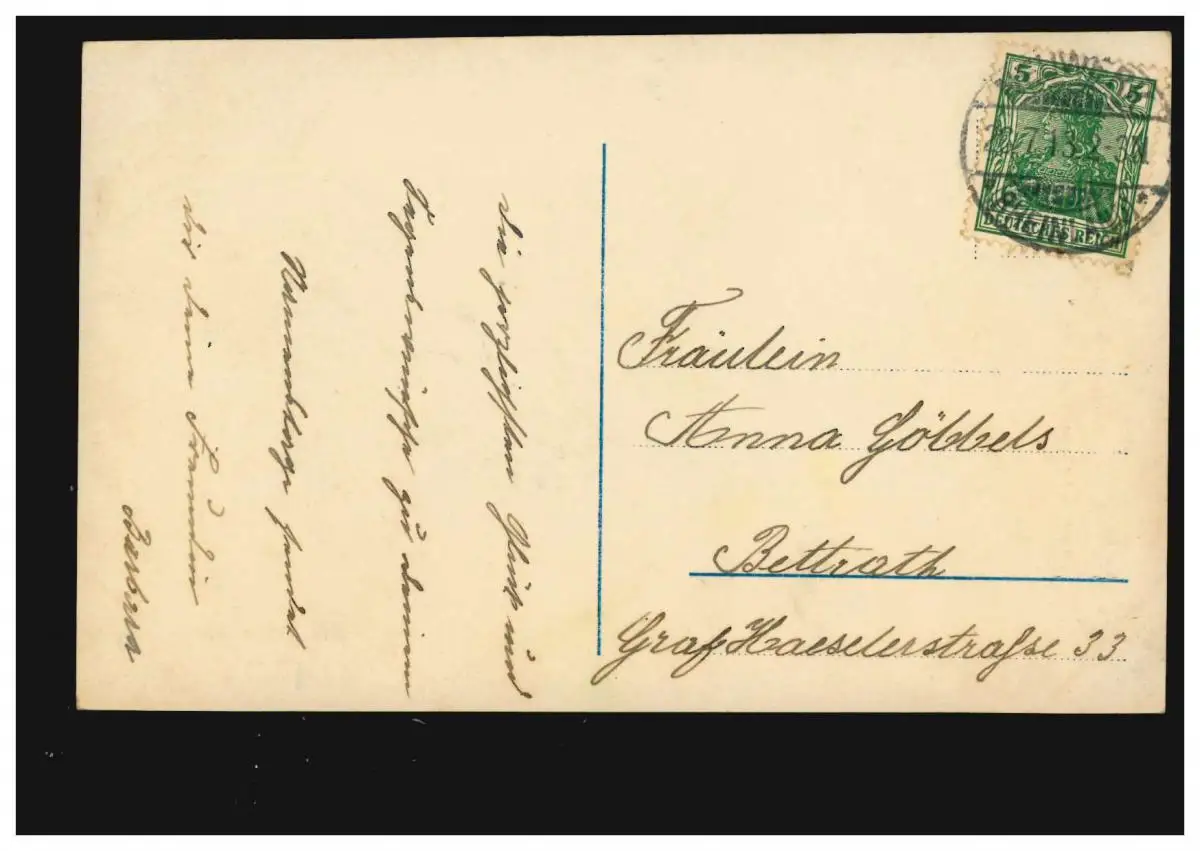 die herzlichsten Glück und
Segenswünsche zu deinem
Namenstage sendet
dir deine Freundin
Barbara
5 5
7.13.2-3N
DEUTSCHES REICH
Fräulein
Anna Göbbels
Bettrath
Graf Haeselerstraße 33